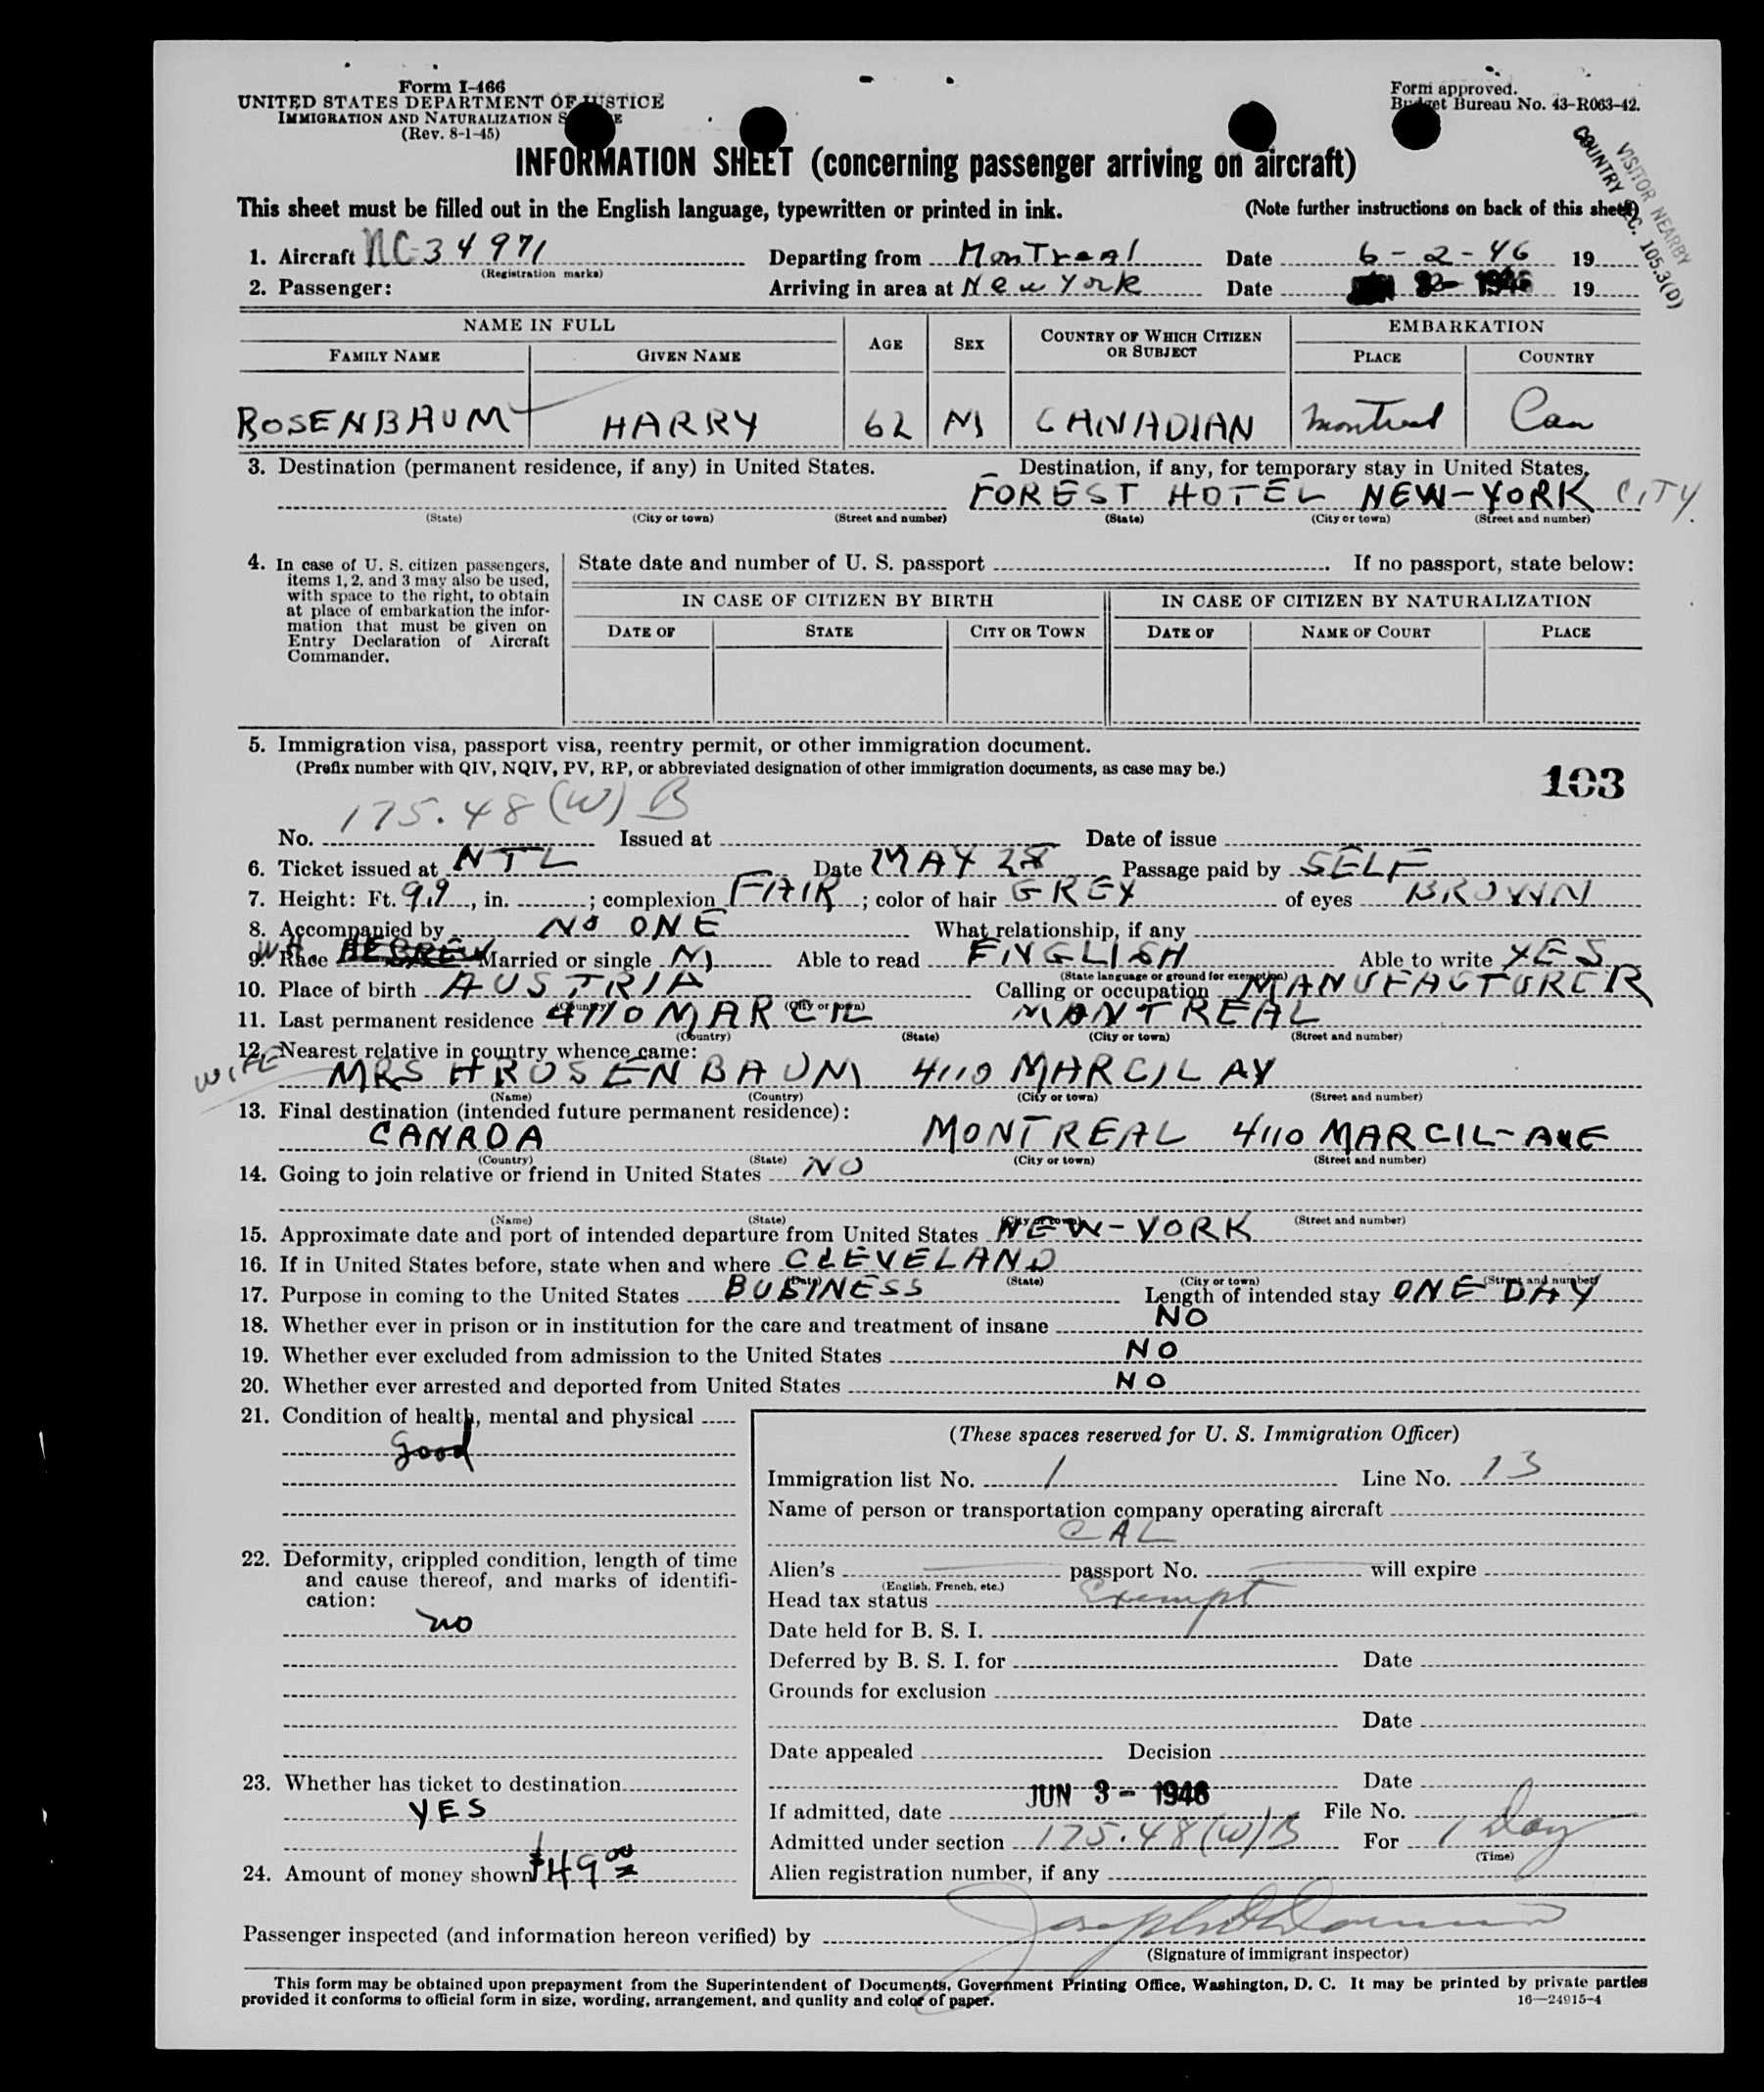 Form I-466
UNITED STATES DEPARTMENT OF JUSTICE
IMMIGRATION AND NATURALIZATION S E
(Rev. 8-1-45)
Form approved.
Budget Bureau No. 43-R063-42.
VISITOR NEARBY
COUNTRY C. 105.3(D)
INFORMATION SHEET (concerning passenger arriving on aircraft)
This sheet must be filled out in the English language, typewritten or printed in ink. (Note further instructions on back of this sheet)
1. Aircraft NC34971 Departing from Montreal Date 6-2-46 19
(Registration marks)
2. Passenger: Arriving in area at New York Date 1946 19
NAME IN FULL
FAMILY NAME GIVEN NAME AGE SEX COUNTRY OF WHICH CITIZEN OR SUBJECT EMBARKATION PLACE COUNTRY
ROSENBAUM HARRY 62 M CANADIAN Montreal Can
3. Destination (permanent residence, if any) in United States. Destination, if any, for temporary stay in United States.
FOREST HOTEL NEW-YORK CITY.
(State) (City or town) (Street and number) (State) (City or town) (Street and number)
4. In case of U. S. citizen passengers, items 1, 2, and 3 may also be used, with space to the right, to obtain at place of embarkation the information that must be given on Entry Declaration of Aircraft Commander.
State date and number of U. S. passport . If no passport, state below:
IN CASE OF CITIZEN BY BIRTH IN CASE OF CITIZEN BY NATURALIZATION
DATE OF STATE CITY OR TOWN DATE OF NAME OF COURT PLACE
5. Immigration visa, passport visa, reentry permit, or other immigration document.
(Prefix number with QIV, NQIV, PV, RP, or abbreviated designation of other immigration documents, as case may be.)
103
No. 175.48(W)B Issued at Date of issue
6. Ticket issued at NTL Date MAY 28 Passage paid by SELF
7. Height: Ft. 9.9, in. ; complexion FAIR; color of hair GREY of eyes BROWN
8. Accompanied by NO ONE What relationship, if any
WH.
9. Race HEBREW Married or single M Able to read ENGLISH Able to write YES
(State language or ground for exemption)
10. Place of birth AUSTRIA Calling or occupation MANUFACTURER
(Country) (City or town)
11. Last permanent residence 4110 MARCIL MONTREAL
(Country) (State) (City or town) (Street and number)
12. Nearest relative in country whence came:
WIFE MRS H ROSENBAUM 4110 MARCIL AV
(Name) (Country) (City or town) (Street and number)
13. Final destination (intended future permanent residence):
CANADA MONTREAL 4110 MARCIL-AVE
(Country) (State) (City or town) (Street and number)
14. Going to join relative or friend in United States NO
(Name) (State) (City or town) (Street and number)
15. Approximate date and port of intended departure from United States NEW-YORK
16. If in United States before, state when and where CLEVELAND
(Date) (State) (City or town) (Street and number)
17. Purpose in coming to the United States BUSINESS Length of intended stay ONE DAY
18. Whether ever in prison or in institution for the care and treatment of insane NO
19. Whether ever excluded from admission to the United States NO
20. Whether ever arrested and deported from United States NO
21. Condition of health, mental and physical
Good
22. Deformity, crippled condition, length of time and cause thereof, and marks of identification:
no
23. Whether has ticket to destination
YES
24. Amount of money shown $49.00
(These spaces reserved for U. S. Immigration Officer)
Immigration list No. 1 Line No. 13
Name of person or transportation company operating aircraft
CAL
Alien's passport No. will expire
(English, French, etc.)
Head tax status Exempt
Date held for B. S. I.
Deferred by B. S. I. for Date
Grounds for exclusion
Date
Date appealed Decision
Date
If admitted, date JUN 3 - 1946 File No.
Admitted under section 175.48(W)B For 1 Day
(Time)
Alien registration number, if any
Passenger inspected (and information hereon verified) by
(Signature of immigrant inspector)
This form may be obtained upon prepayment from the Superintendent of Documents, Government Printing Office, Washington, D. C. It may be printed by private parties
provided it conforms to official form in size, wording, arrangement, and quality and color of paper. 16—24915-4